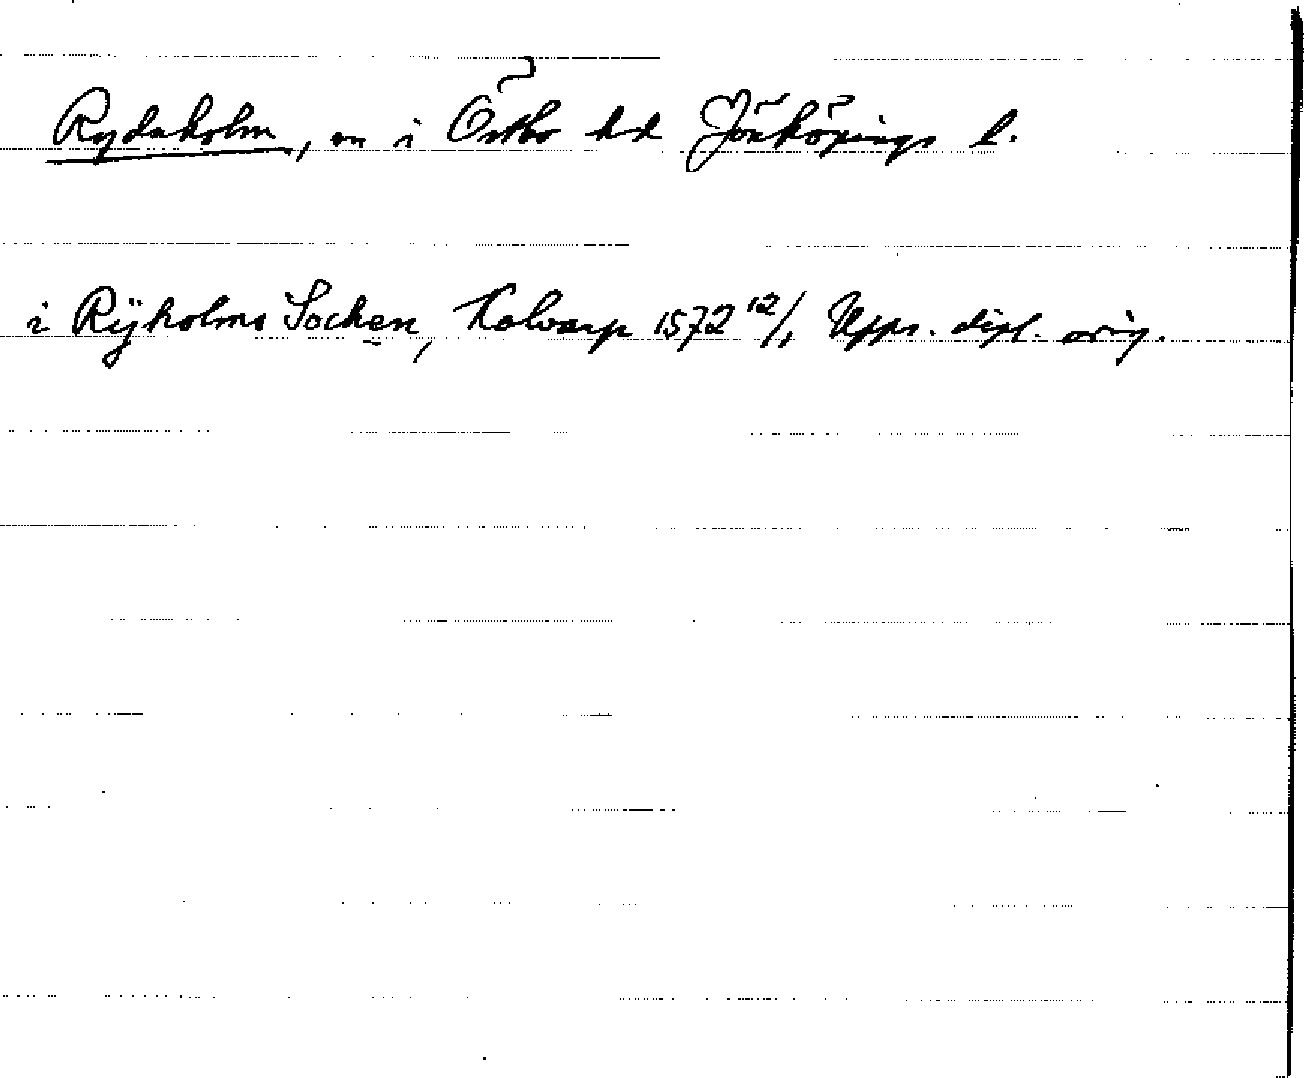 Rydaholm, sn i Östbo hd Jönköpings l.
i Rÿholms Socken, Kalvarp 1572 12/1 Upps. dipl. orig.